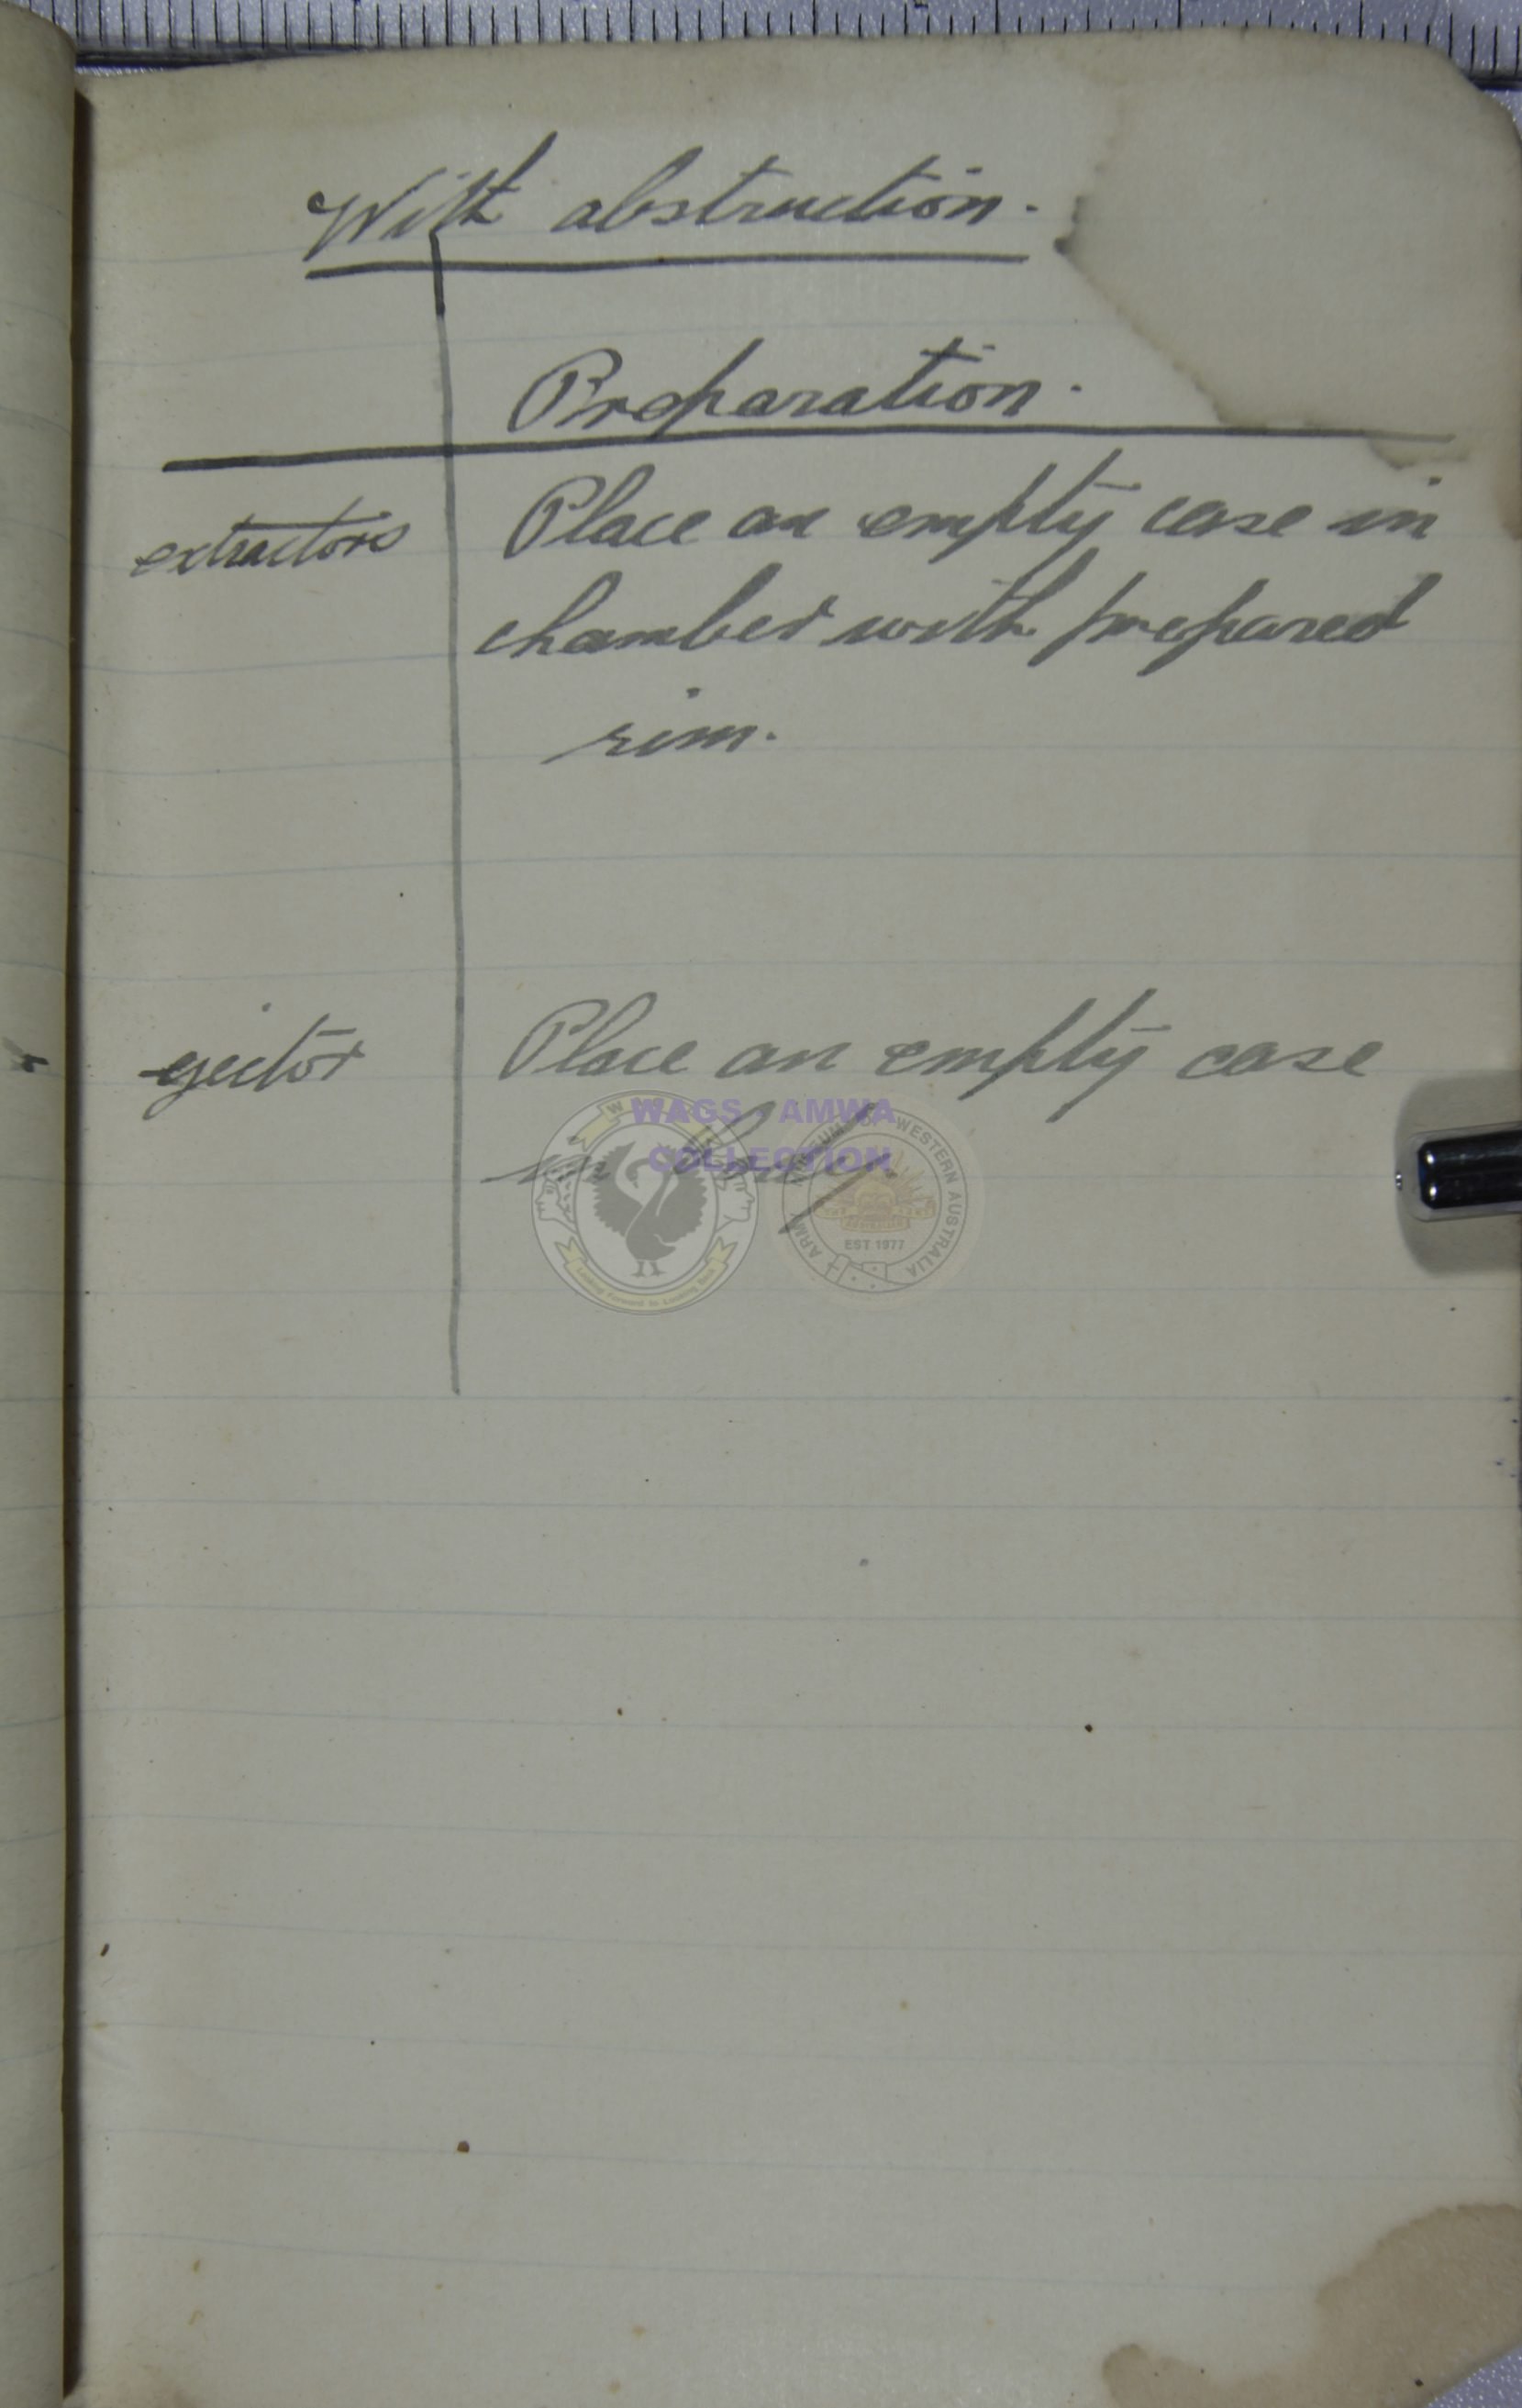 With abstruction.
Preparation.
extractors Place an empty case in
chamber with prepared
rim.
ejector Place an empty case
in body.
WAGS AMWA
COLLECTION
ARMY MUSEUM OF WESTERN AUSTRALIA
EST 1977
Looking Forward to Looking Back